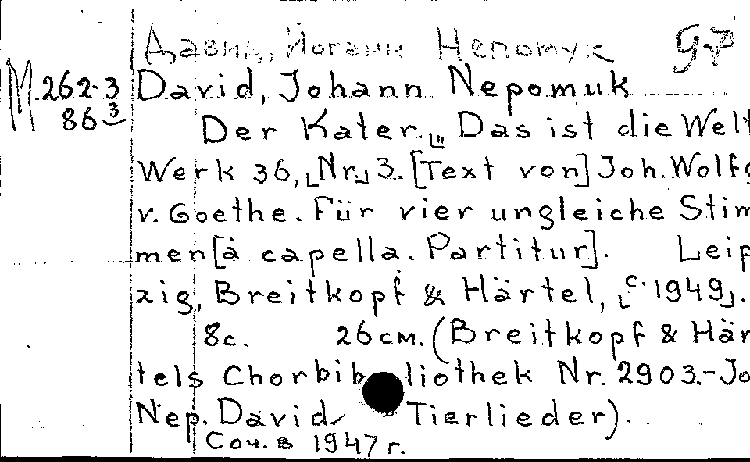 Давид, Иоганн Непомук
М 262-3 David, Johann Nepomuk
86 3 Der Kater. „Das ist die Welt
Werk 36, [Nr.] 3. [Text von] Joh. Wolfg
v. Goethe. Für vier ungleiche Stim
men [à capella. Partitur]. Leip
zig, Breitkopf & Härtel, [c. 1949].
8 с. 26 см. (Breitkopf & Här
tels Chorbibliothek Nr. 2903.-Jo
Nep. David Tierlieder).
Соч. в 1947 г.